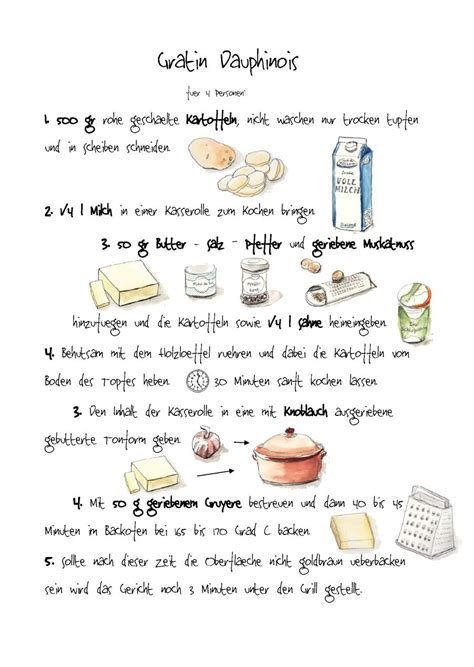 Gratin Dauphinois
fuer 4 Personen:
1. 500 gr rohe geschaelte Kartoffeln, nicht waschen nur trocken tupfen
und in scheiben schneiden.
VOLL
MILCH
2. 1/4 l Milch in einer Kasserolle zum Kochen bringen.
3. 50 gr Butter - Salz - Pfeffer und geriebene Muskatnuss
hinzufuegen und die Kartoffeln sowie 1/4 l Sahne heineingeben.
4. Behutsam mit dem Holzloeffel ruehren und dabei die Kartoffeln vom
Boden des Topfes heben. 30 Minuten sanft kochen lassen.
3. Den Inhalt der Kasserolle in eine mit Knoblauch ausgeriebene
gebutterte Tonform geben.
4. Mit 50 g geriebenem Gruyere bestreuen und dann 40 bis 45
Minuten im Backofen bei 165 bis 170 Grad C backen.
5. Sollte nach dieser Zeit die Oberflaeche nicht goldbraun ueberbacken
sein wird das Gericht noch 3 Minuten unter den Grill gestellt.